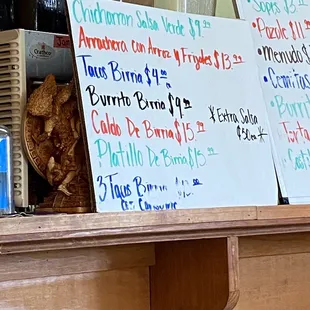 Chicharron Salsa Verde $9
Arrachera con Arroz y Frijoles $13.99
Tacos Birria $4.99
Burrito Birria $9.99
Caldo De Birria $15.99
Platillo De Birria $15.99
3 Tacos Birria
Con Consume
*Extra Salsa
$0.50*
Sopes
Pozole $
•Menudo $
•Cemitas